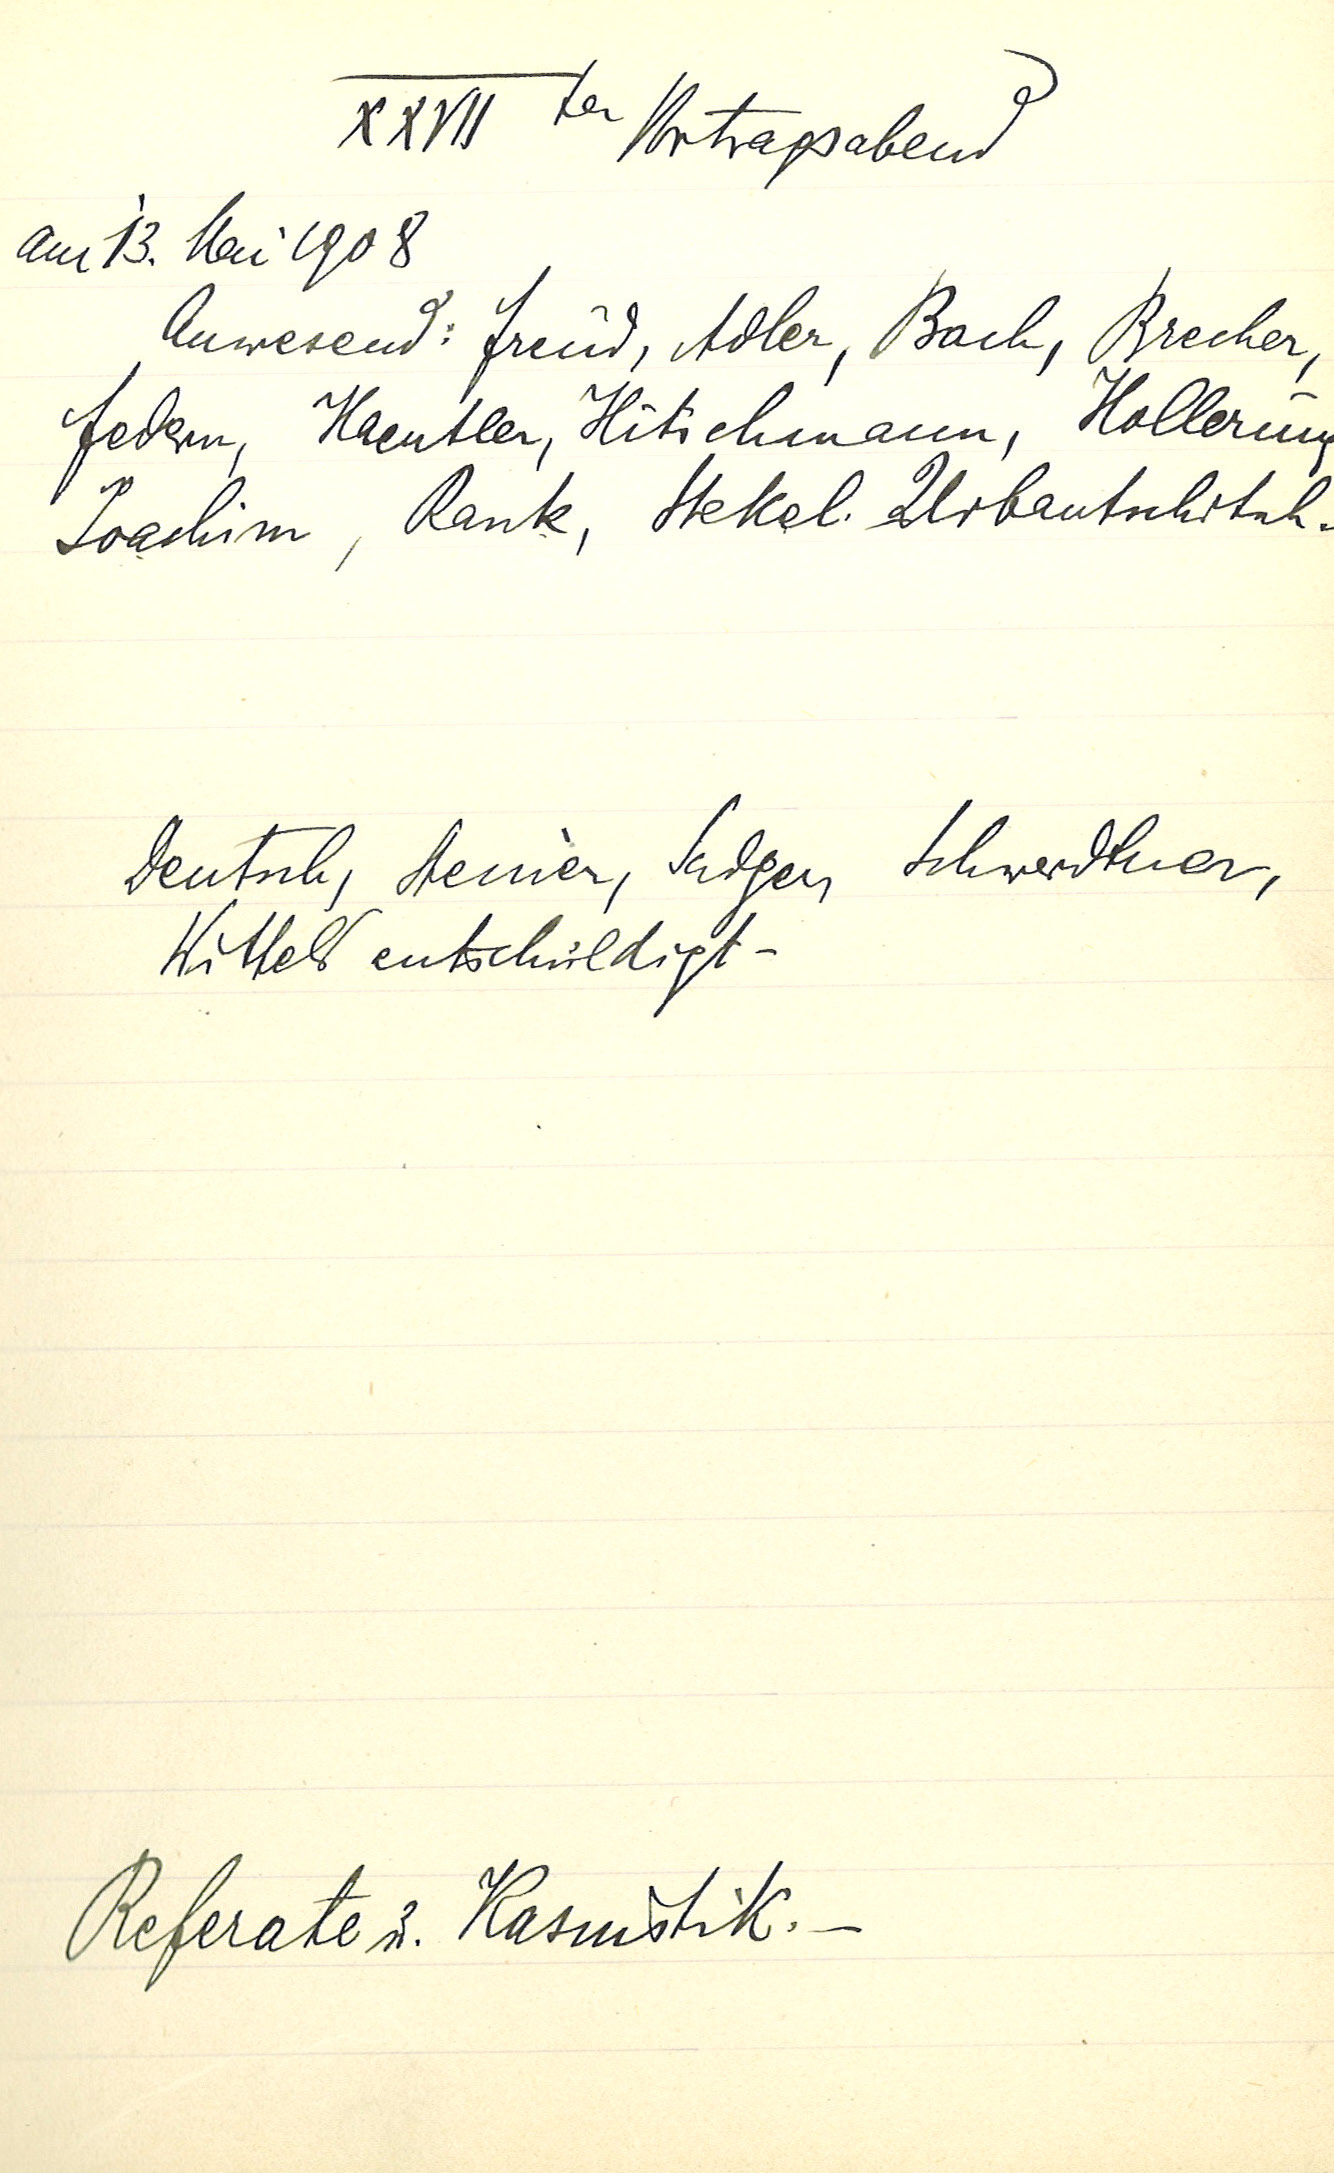 XXVII ter Vortragsabend
am 13. Mai 1908
Anwesend: Freud, Adler, Bach, Brecher,
Federn, Haeutler, Hitschmann, Hollerung
Joachim, Rank, Stekel. Urbantschitsch.
Deutsch, Steiner, Sadger, Schwerdtner,
Wittels entschuldigt -
Referate u. Kasuistik. —